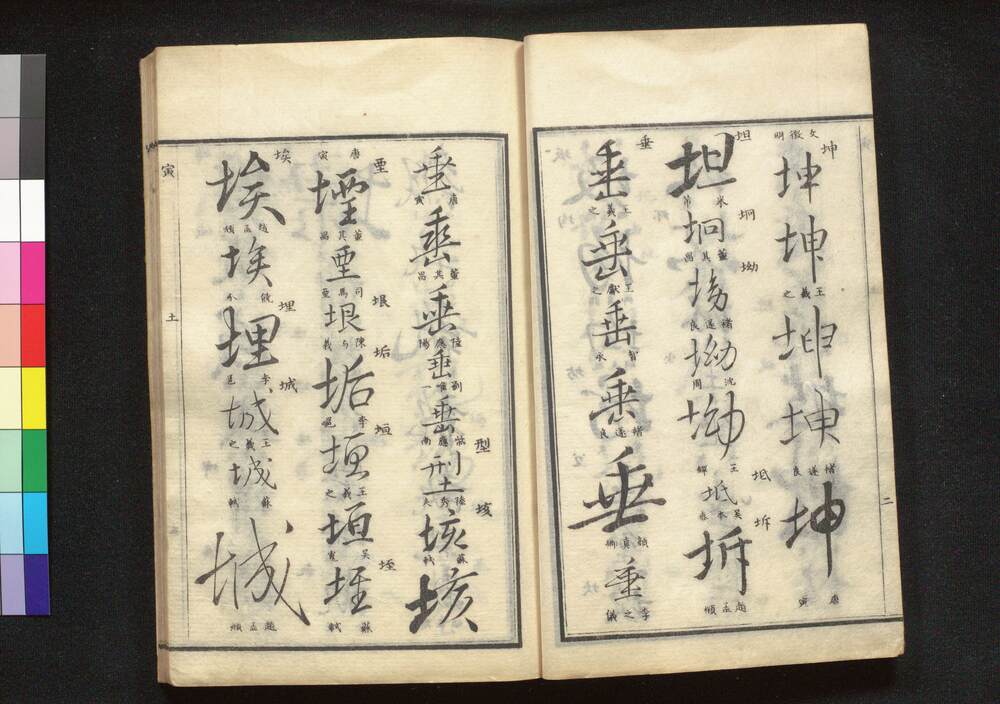 坤
文徵明
坤
坤
王羲之
坤
坤
褚遂良
坤
唐寅
二
坦
坦
米芾
坰
坰
董其昌
坳
坳
褚遂良
坳
沈周
坳
王
坻
坻
吴
坼
坼
趙孟頫
垂
垂
王羲之
垂
王獻之
垂
智永
垂
褚遂良
垂
顏真卿
垂
李之儀
垂
唐
垂
董其昌
垂
陸應陽
垂
劉唯一
垂
型
型
陸秀夫
垓
垓
蘇軾
垓
唐寅
垔
垔
董其昌
垔
司馬
垠
垠
陳与義
垢
垢
李邕
垣
垣
王羲之
垣
吴寬
垤
垤
蘇軾
埃
埃
趙孟頫
埃
埋
埋
李邕
城
城
王羲之
城
蘇軾
城
趙孟頫
寅
土